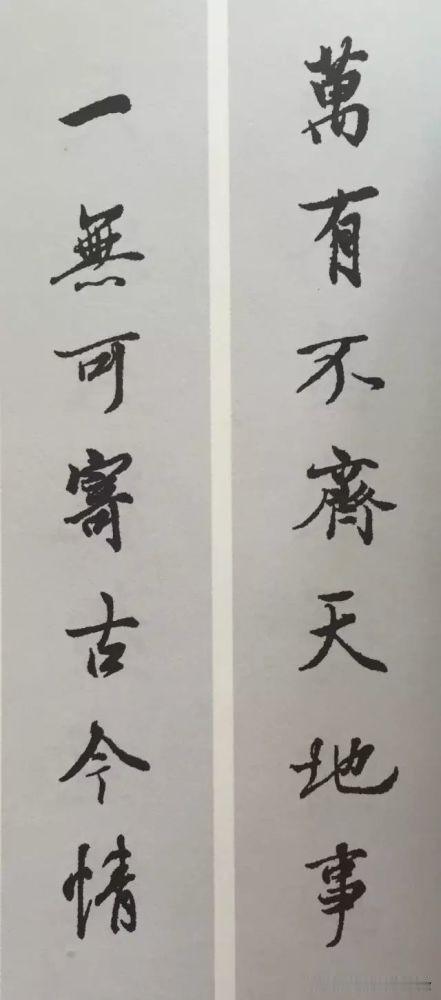 萬有不齊天地事
一無可寄古今情